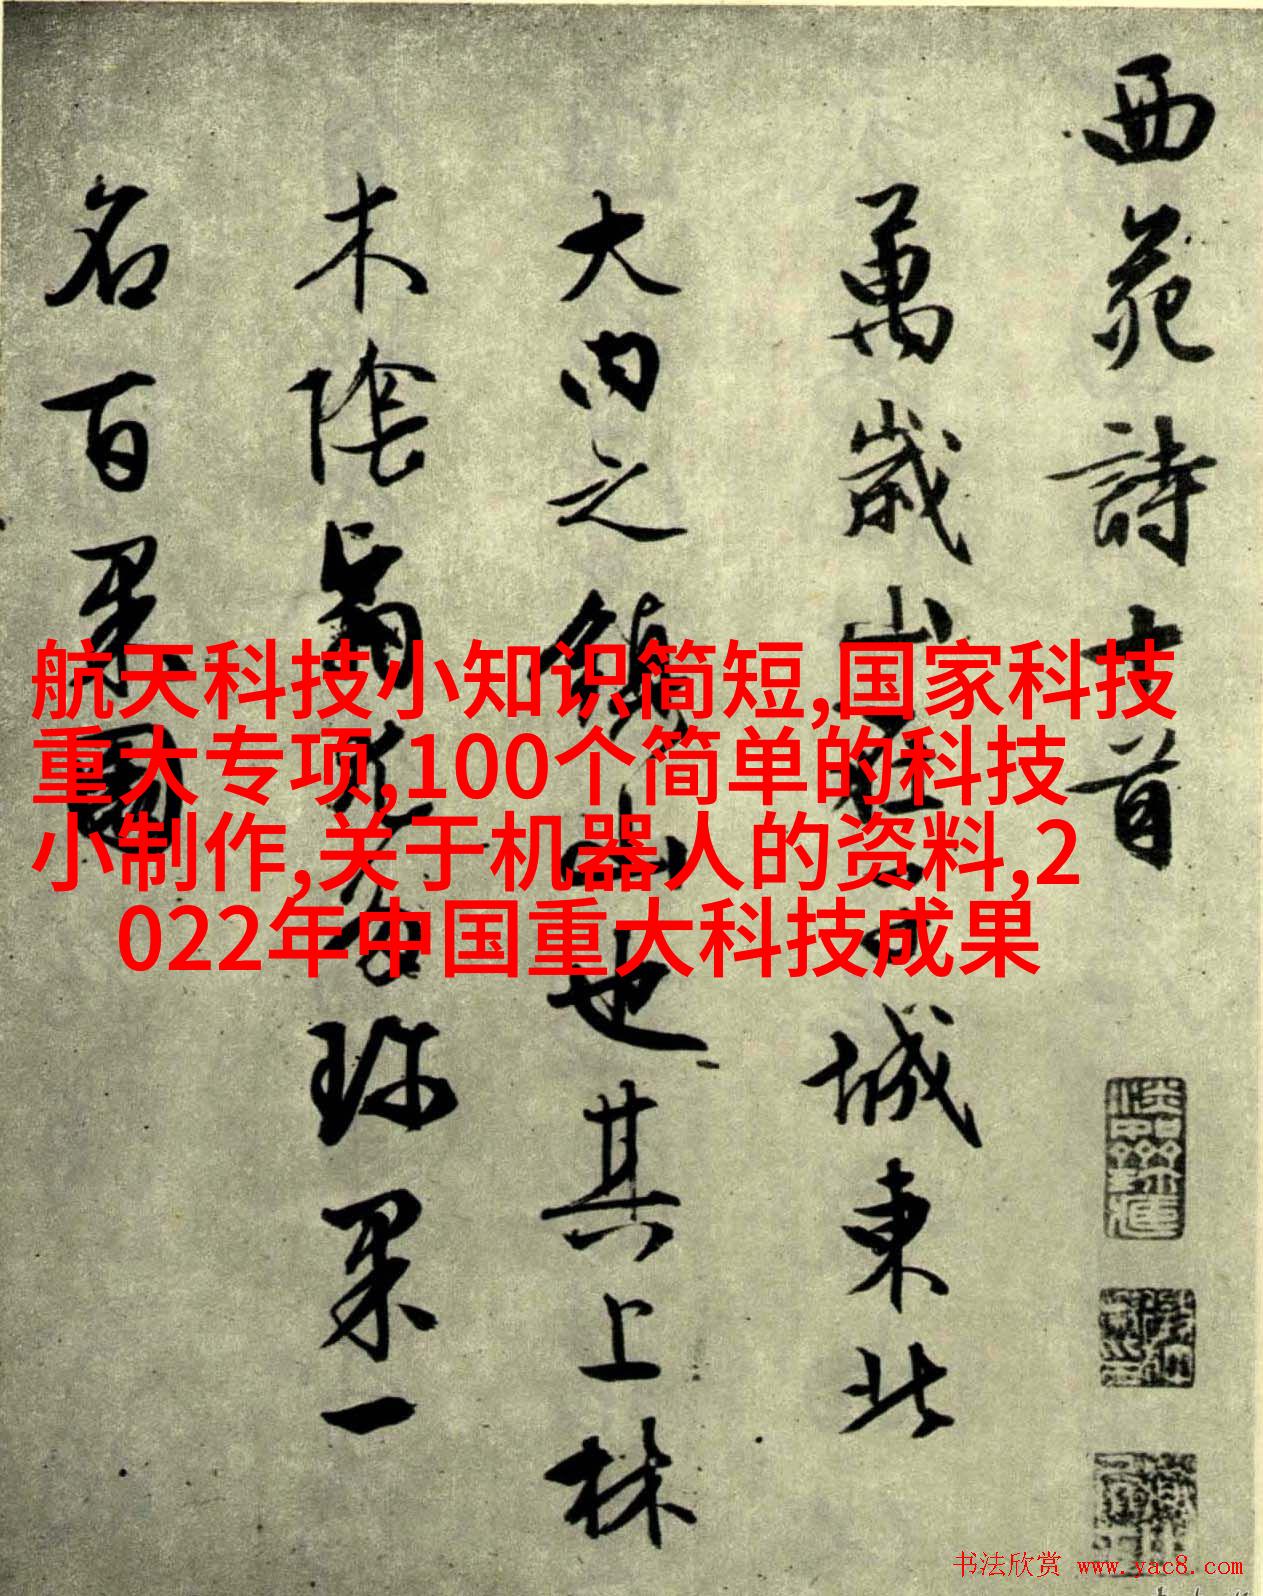 西苑詩十首
萬歲山在城東北
大内之鎮山也其上林
木陰翳尤多珍果一
名百果園
航天科技小知识简短,国家科技
重大专项,100个简单的科技
小制作,关于机器人的资料,2
022年中国重大科技成果
书法欣赏 www.yac8.com